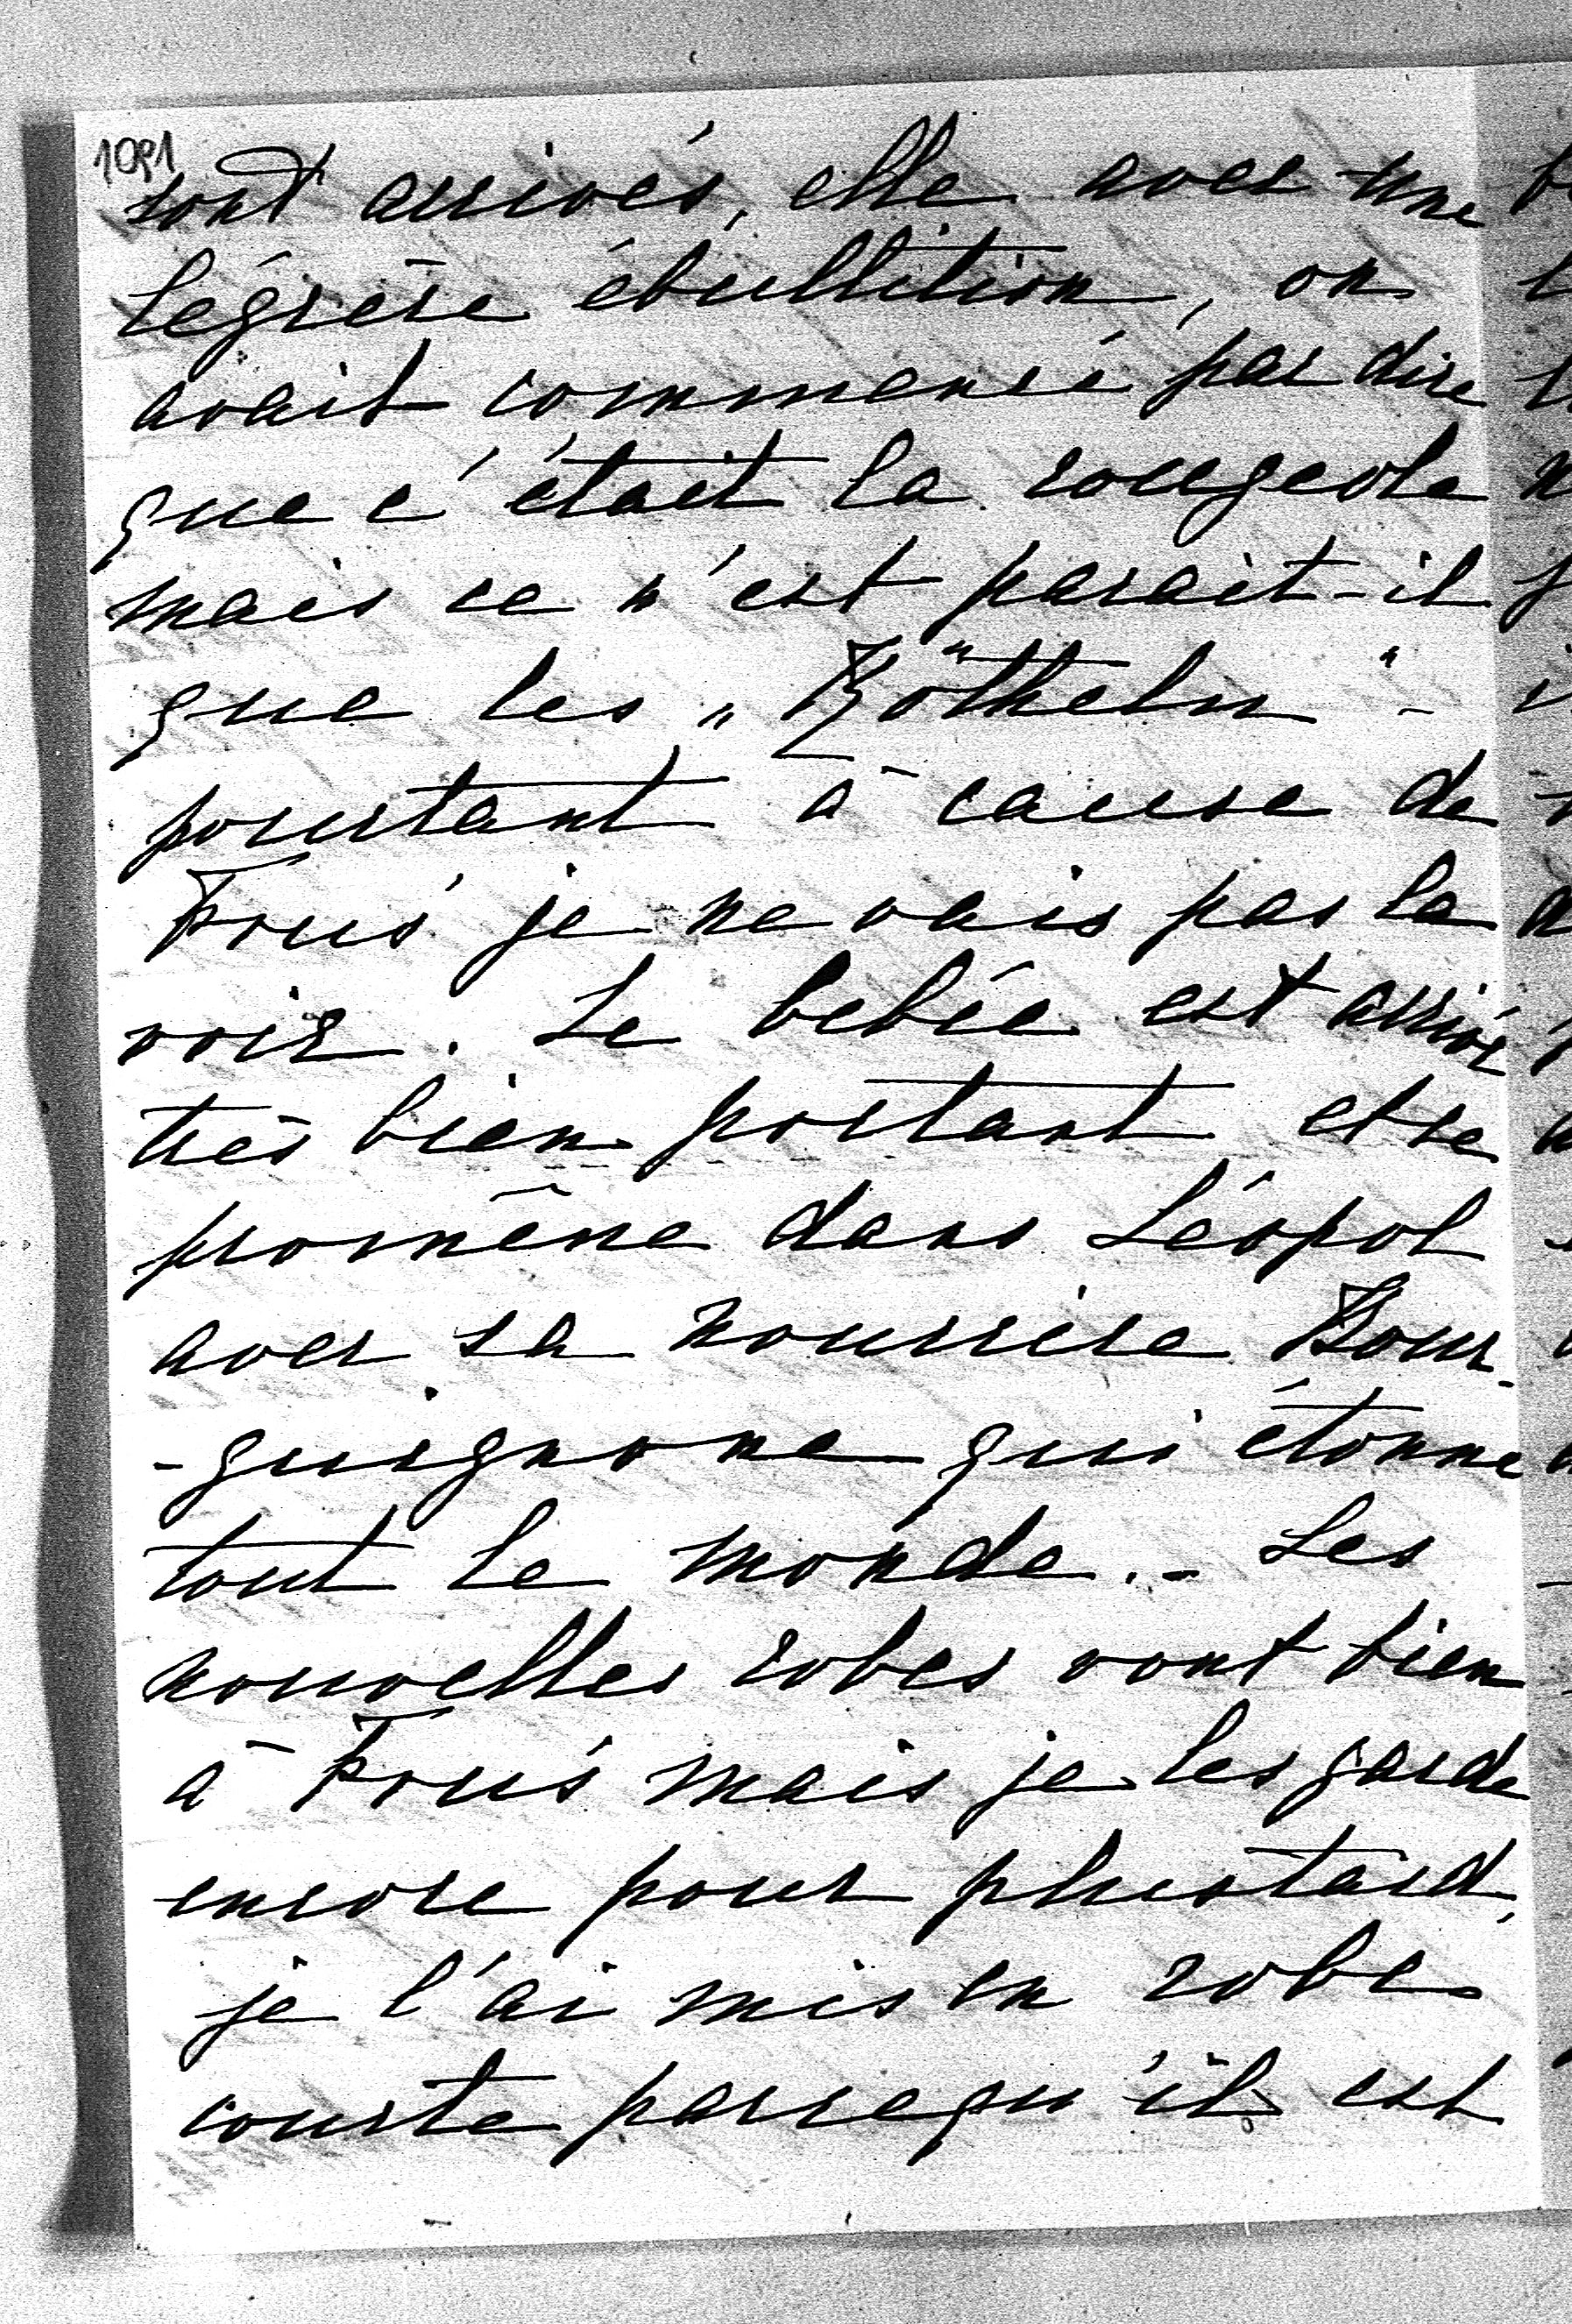 1091
sont arrivés, elle avec une
légrère ébullition, on
avait commencé par dire
que c'était la rougeole
mais ce n'est parait-il
que les „Rötheln" -
pourtant à cause de
Frus' je ne vais pas la
voir. Le bebée est arrivé
très bien portant et se
promêne dans Léopol
avec sa nourrice Bour-
-guignone qui étonne
tout le monde. - Les
nouvelles robes vont bien
à Frus' mais je les garde
encore pour plustard,
je l'ai mis en robe
courte parcequ'il est